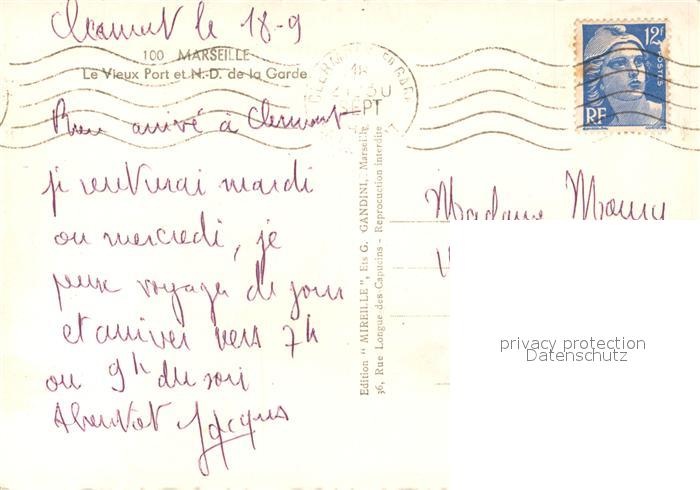 Clermont le 18-9
100 MARSEILLE
Le Vieux Port et N.-D. de la Garde
12F
POSTES
RF
SEPT
Bien arrivé à Clermont
je rentrerai mardi
ou mercredi, je
peux voyager de jour
et arriver vers 7h
ou 9h du soir
A bientôt Jacques
Edition "MIREILLE", Ets G. GANDINI, Marseille
36, Rue Longue-des-Capucins - Reproduction interdite
Madame
privacy protection
Datenschutz